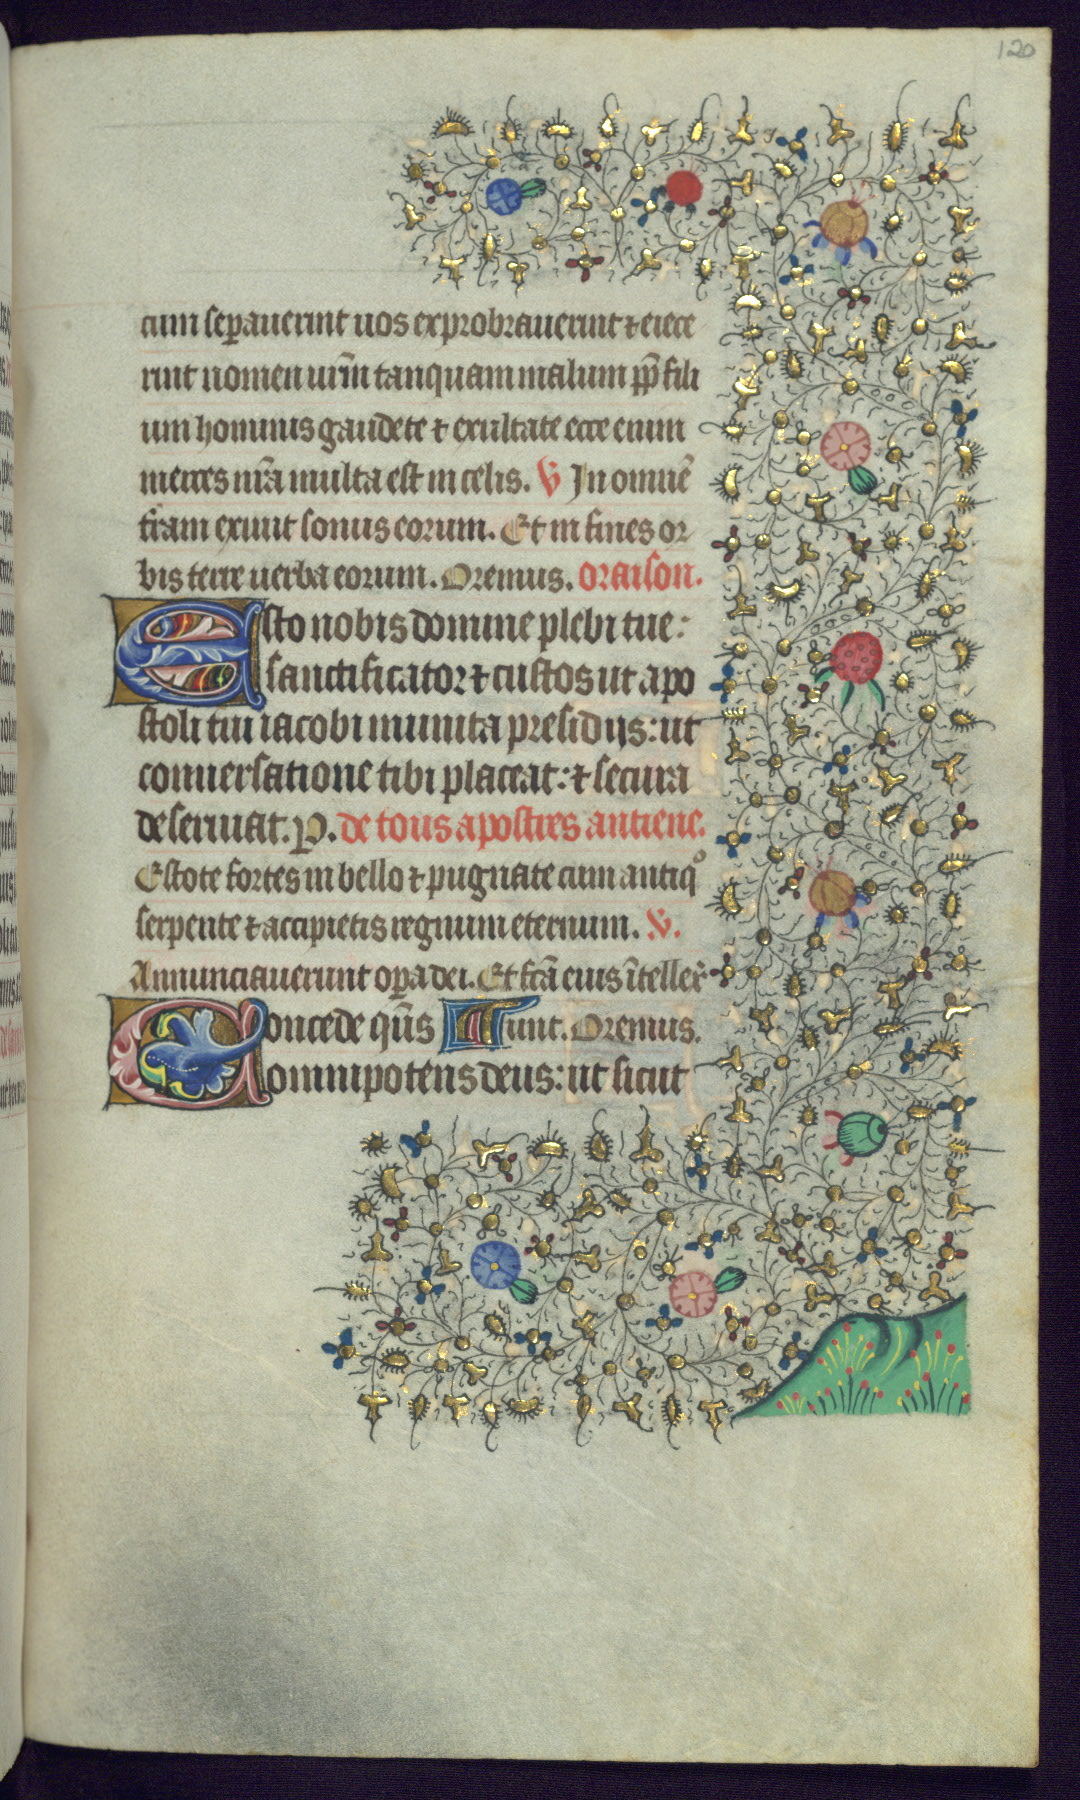 120
cum sepauerint uos exprobrauerint ⁊ eiece
rint nomen urm̄ tanquam malum pp̄ fili
um hominis gaudete ⁊ exultate ecce enim
merces nr̄a multa est in celis. V Jn omnē
tr̄am exiuit sonus eorum. Et in fines or
bis terre uerba eorum. Oremus. oraison.
Esto nobis domine plebi tue:
sanctificator ⁊ custos ut apo
stoli tui iacobi munita presidijs: ut
conuersatione tibi placeat: ⁊ secura
deseruiat. P. de tous apostres antiene.
Estote fortes in bello ⁊ pugnate cum antiqº
serpente ⁊ accipietis regnum eternum. V.
Annunciauerunt opa dei. Et fcā eius ītellex̄
Concede qs̄ unt. Oremus.
omnipotens deus: ut sicut